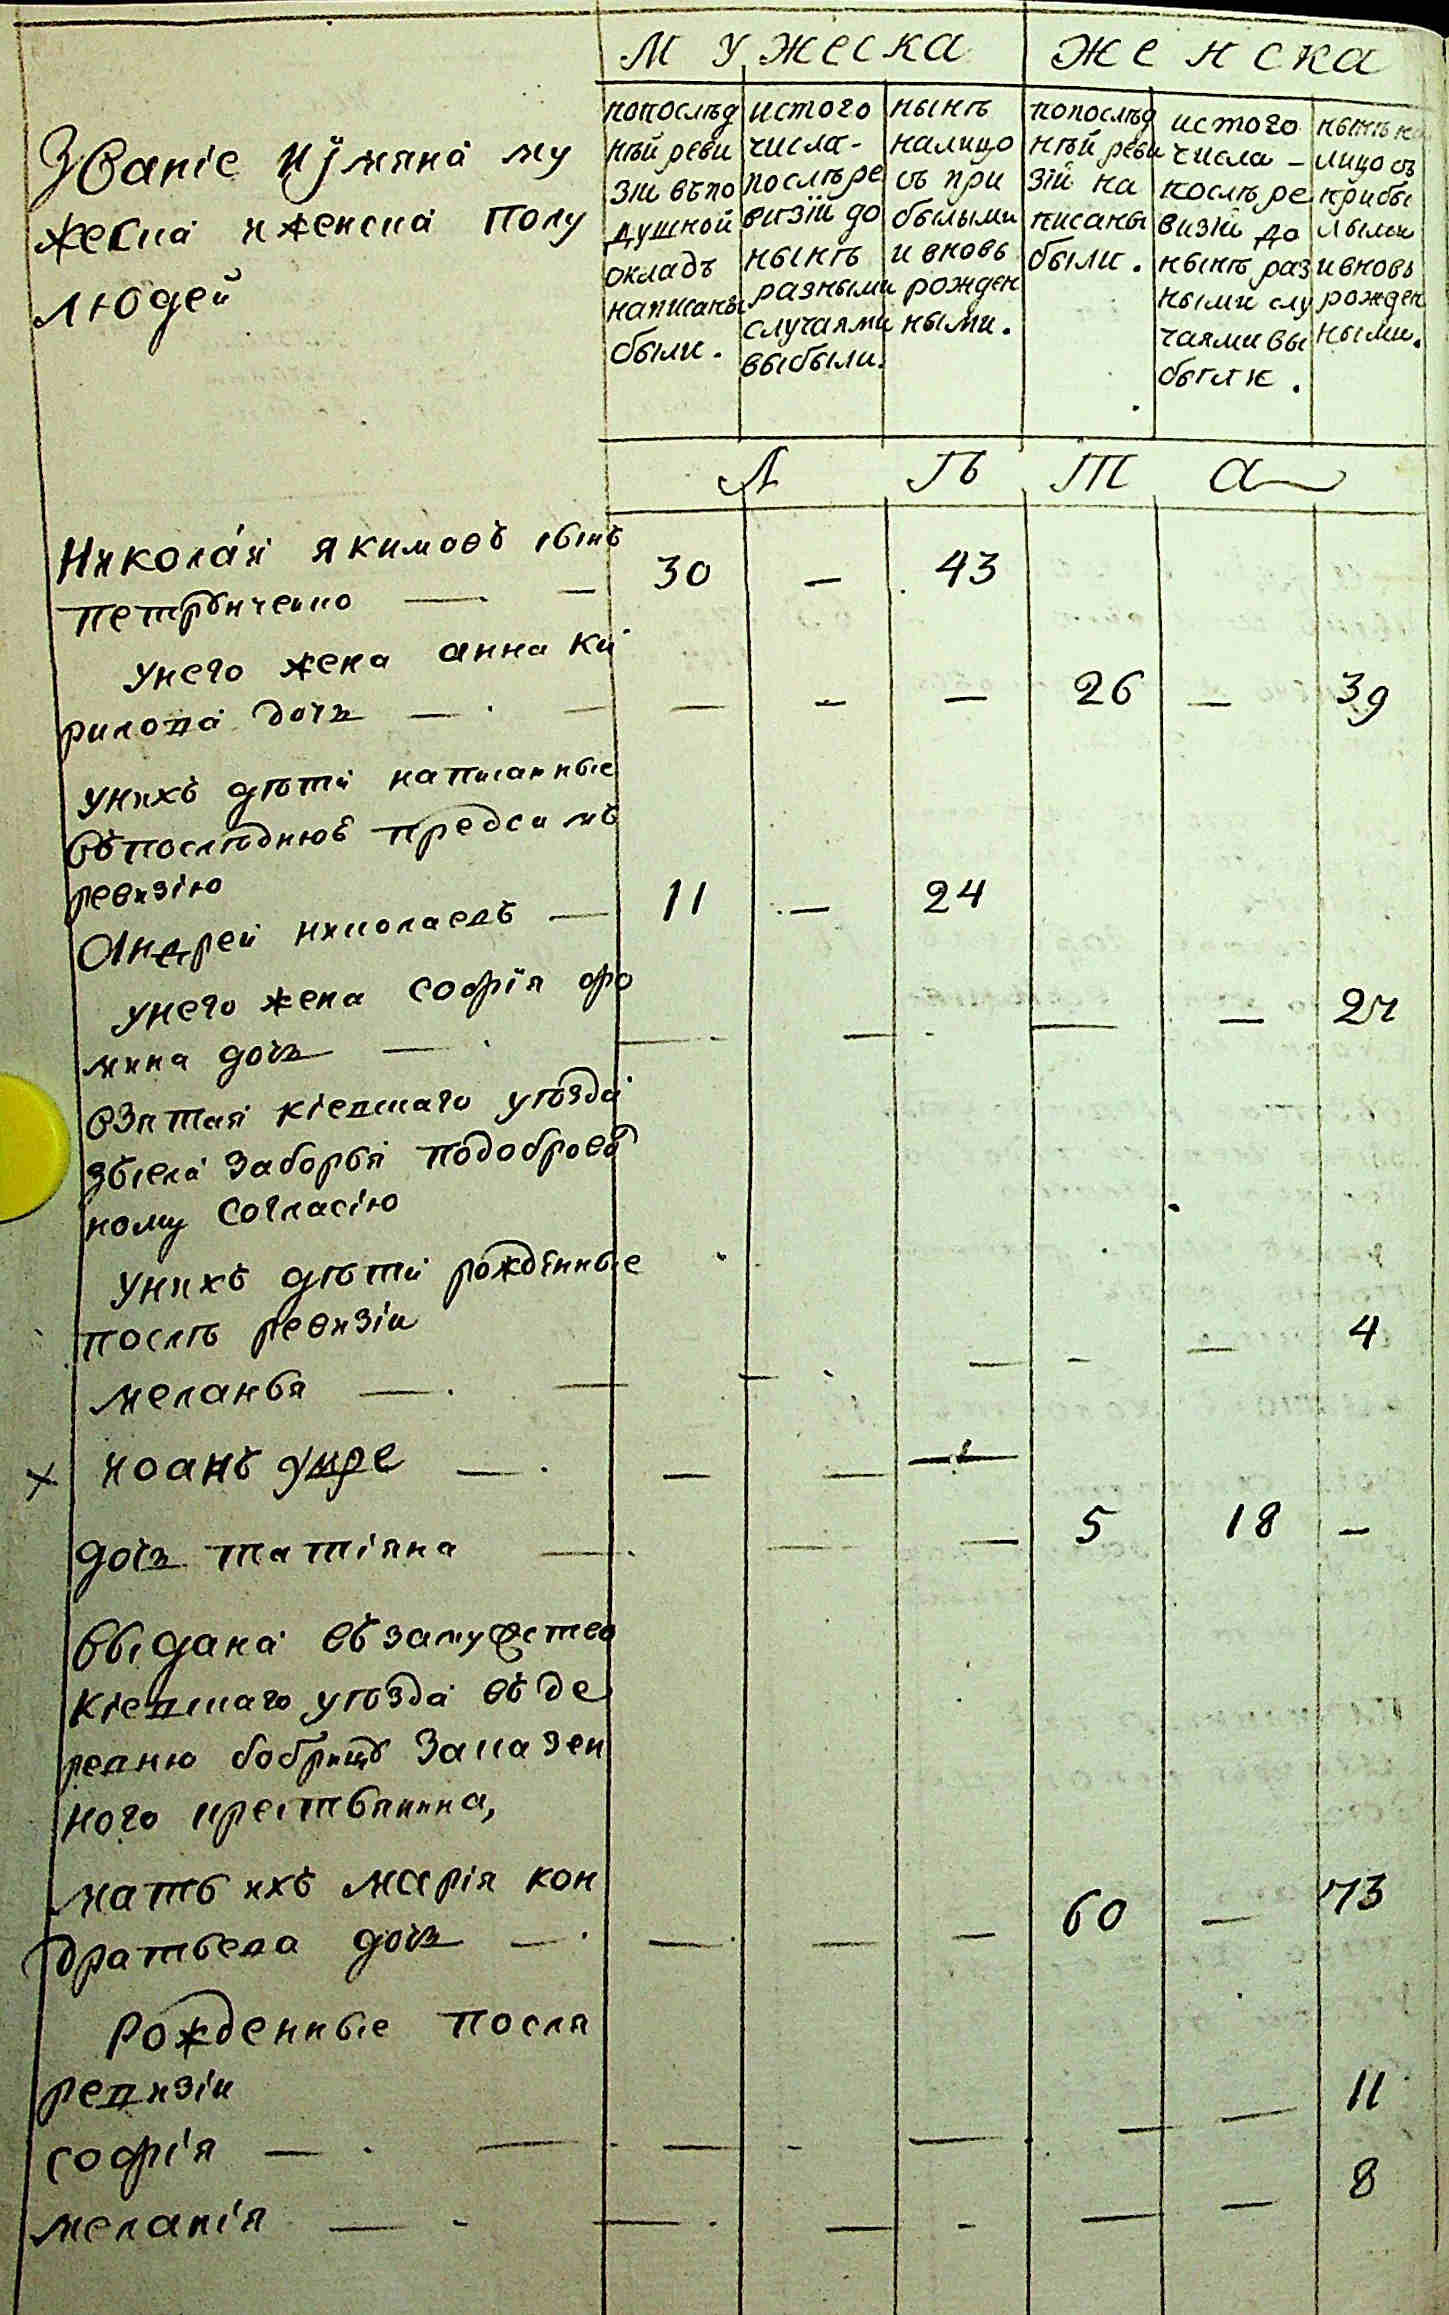 Мужеска Женска
Званіе и имяна му
жеска и женска полу
людей
попослѣд
нѣй реви
зіи въпо
душной
окладъ
написаны
были.
изтого
числа-
послѣре
визіи до
нынѣ
разными
случаями
выбыли.
нынѣ
налицо
съ при
былыми
и вновь
рожден
ными.
попослѣд
нѣй реви
зіи на
писаны
были.
изтого
числа -
послѣ ре
визіи до
нынѣ раз
ными слу
чаями вы
были.
нынѣ на
лицо съ
прибы
лыми
и вновь
рожден
ными.
Лѣта
Николай якимовъ сынъ
петрыченко — — 30 — 43
унего жена анна ки
рилова дочь — — — — — 26 — 39
унихъ дѣти написанные
въпослѣднюю предсимъ
ревизію
Андрей николаевъ — 11 — 24
унего жена софія фо
мина дочь — — — — — — 24
взятая кіевскаго уѣзда
зъсела заборья подобров
ному согласію
унихъ дѣти рожденные
послѣ ревизіи
меланья — — — — — — 4
х иоанъ умре — — — —
дочь татіяна — — — 5 18 —
выдана въ замужство
кіевскаго уѣзда въ де
ревню бобрицу заказен
ного крестьянина,
мать ихъ марія кон
дратьева дочь — — — — 60 — 73
Рожденные посля
ревизіи
софія — — — — — — — 11
меланія — — — — — — — 8